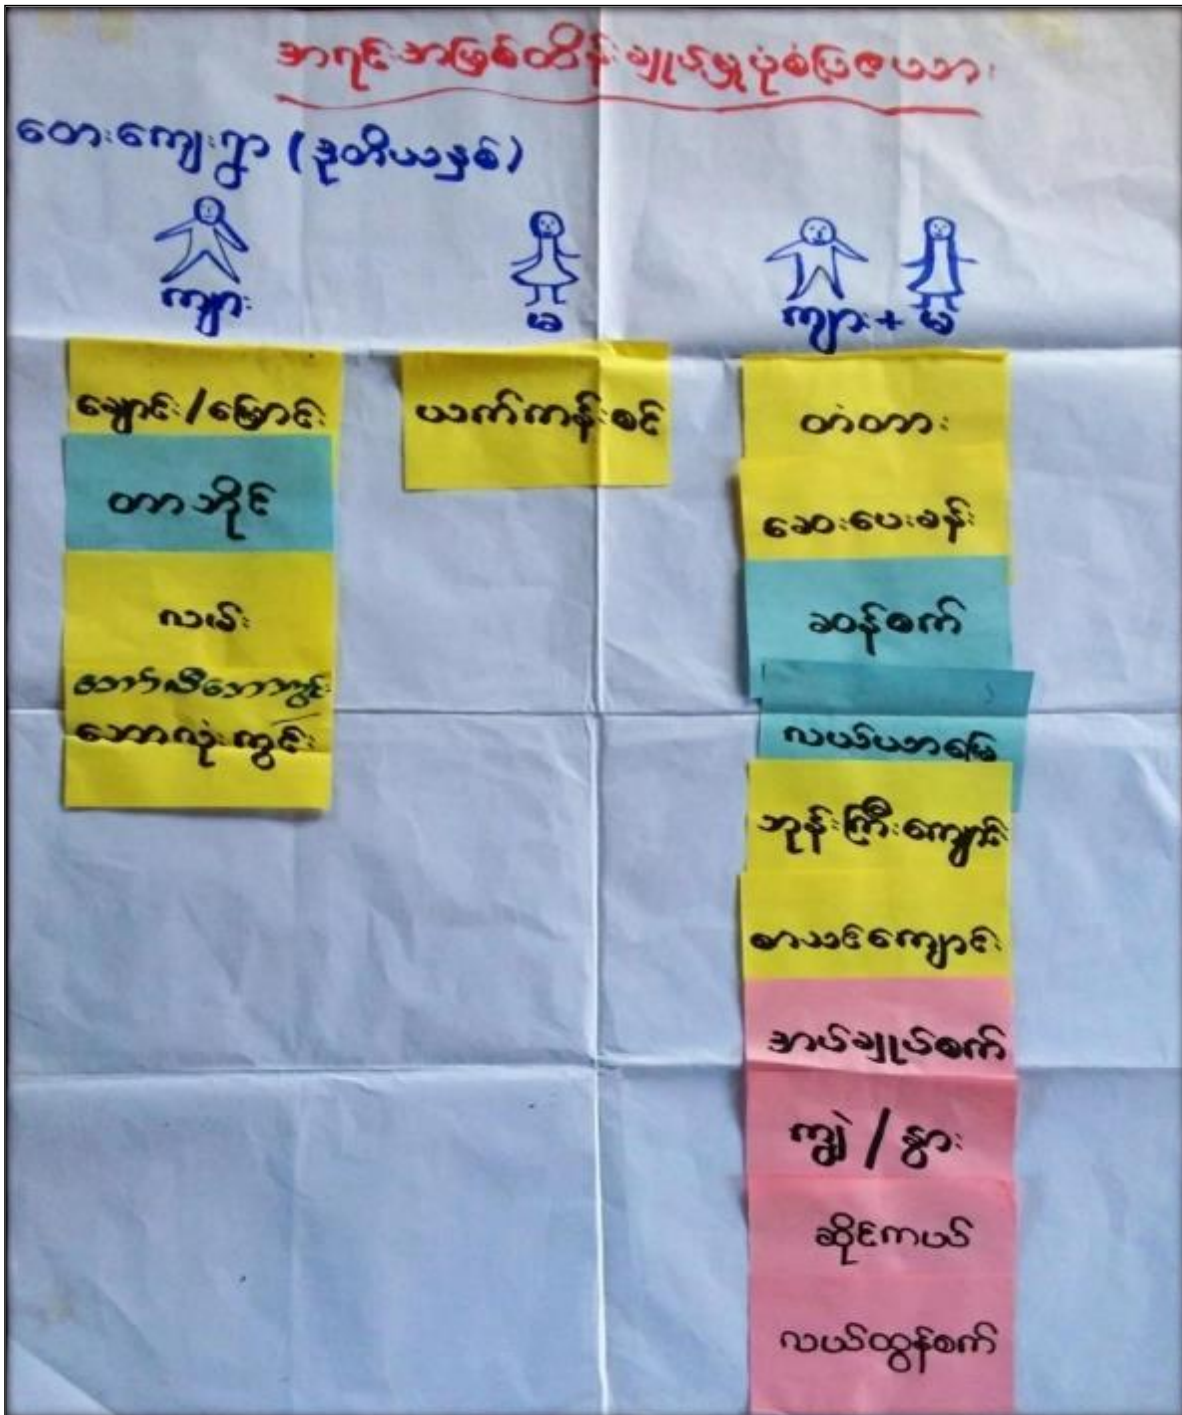 အရင်းအမြစ်ထိန်းချုပ်မှုပုံစံပြဇယား
တေးကျေးရွာ (ဒုတိယနှစ်)
ကျား
မ
ကျား + မ
ချောင်း/မြောင်း
တာဘိုင်
လမ်း
ဘော်လီဘောကွင်း
ဘောလုံးကွင်း
ယက်ကန်းစင်
တံတား
ဆေးပေးခန်း
ဆန်စက်
လယ်ယာမြေ
ဘုန်းကြီးကျောင်း
စာသင်ကျောင်း
အပ်ချုပ်စက်
ကျွဲ / နွား
ဆိုင်ကယ်
လယ်ထွန်စက်